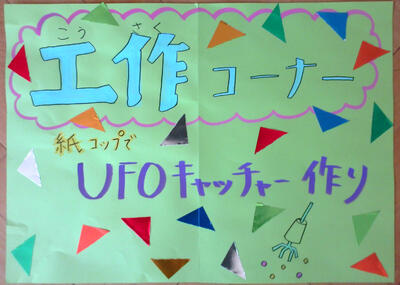 こうさく
工作コーナー
紙コップで
UFOキャッチャー作り